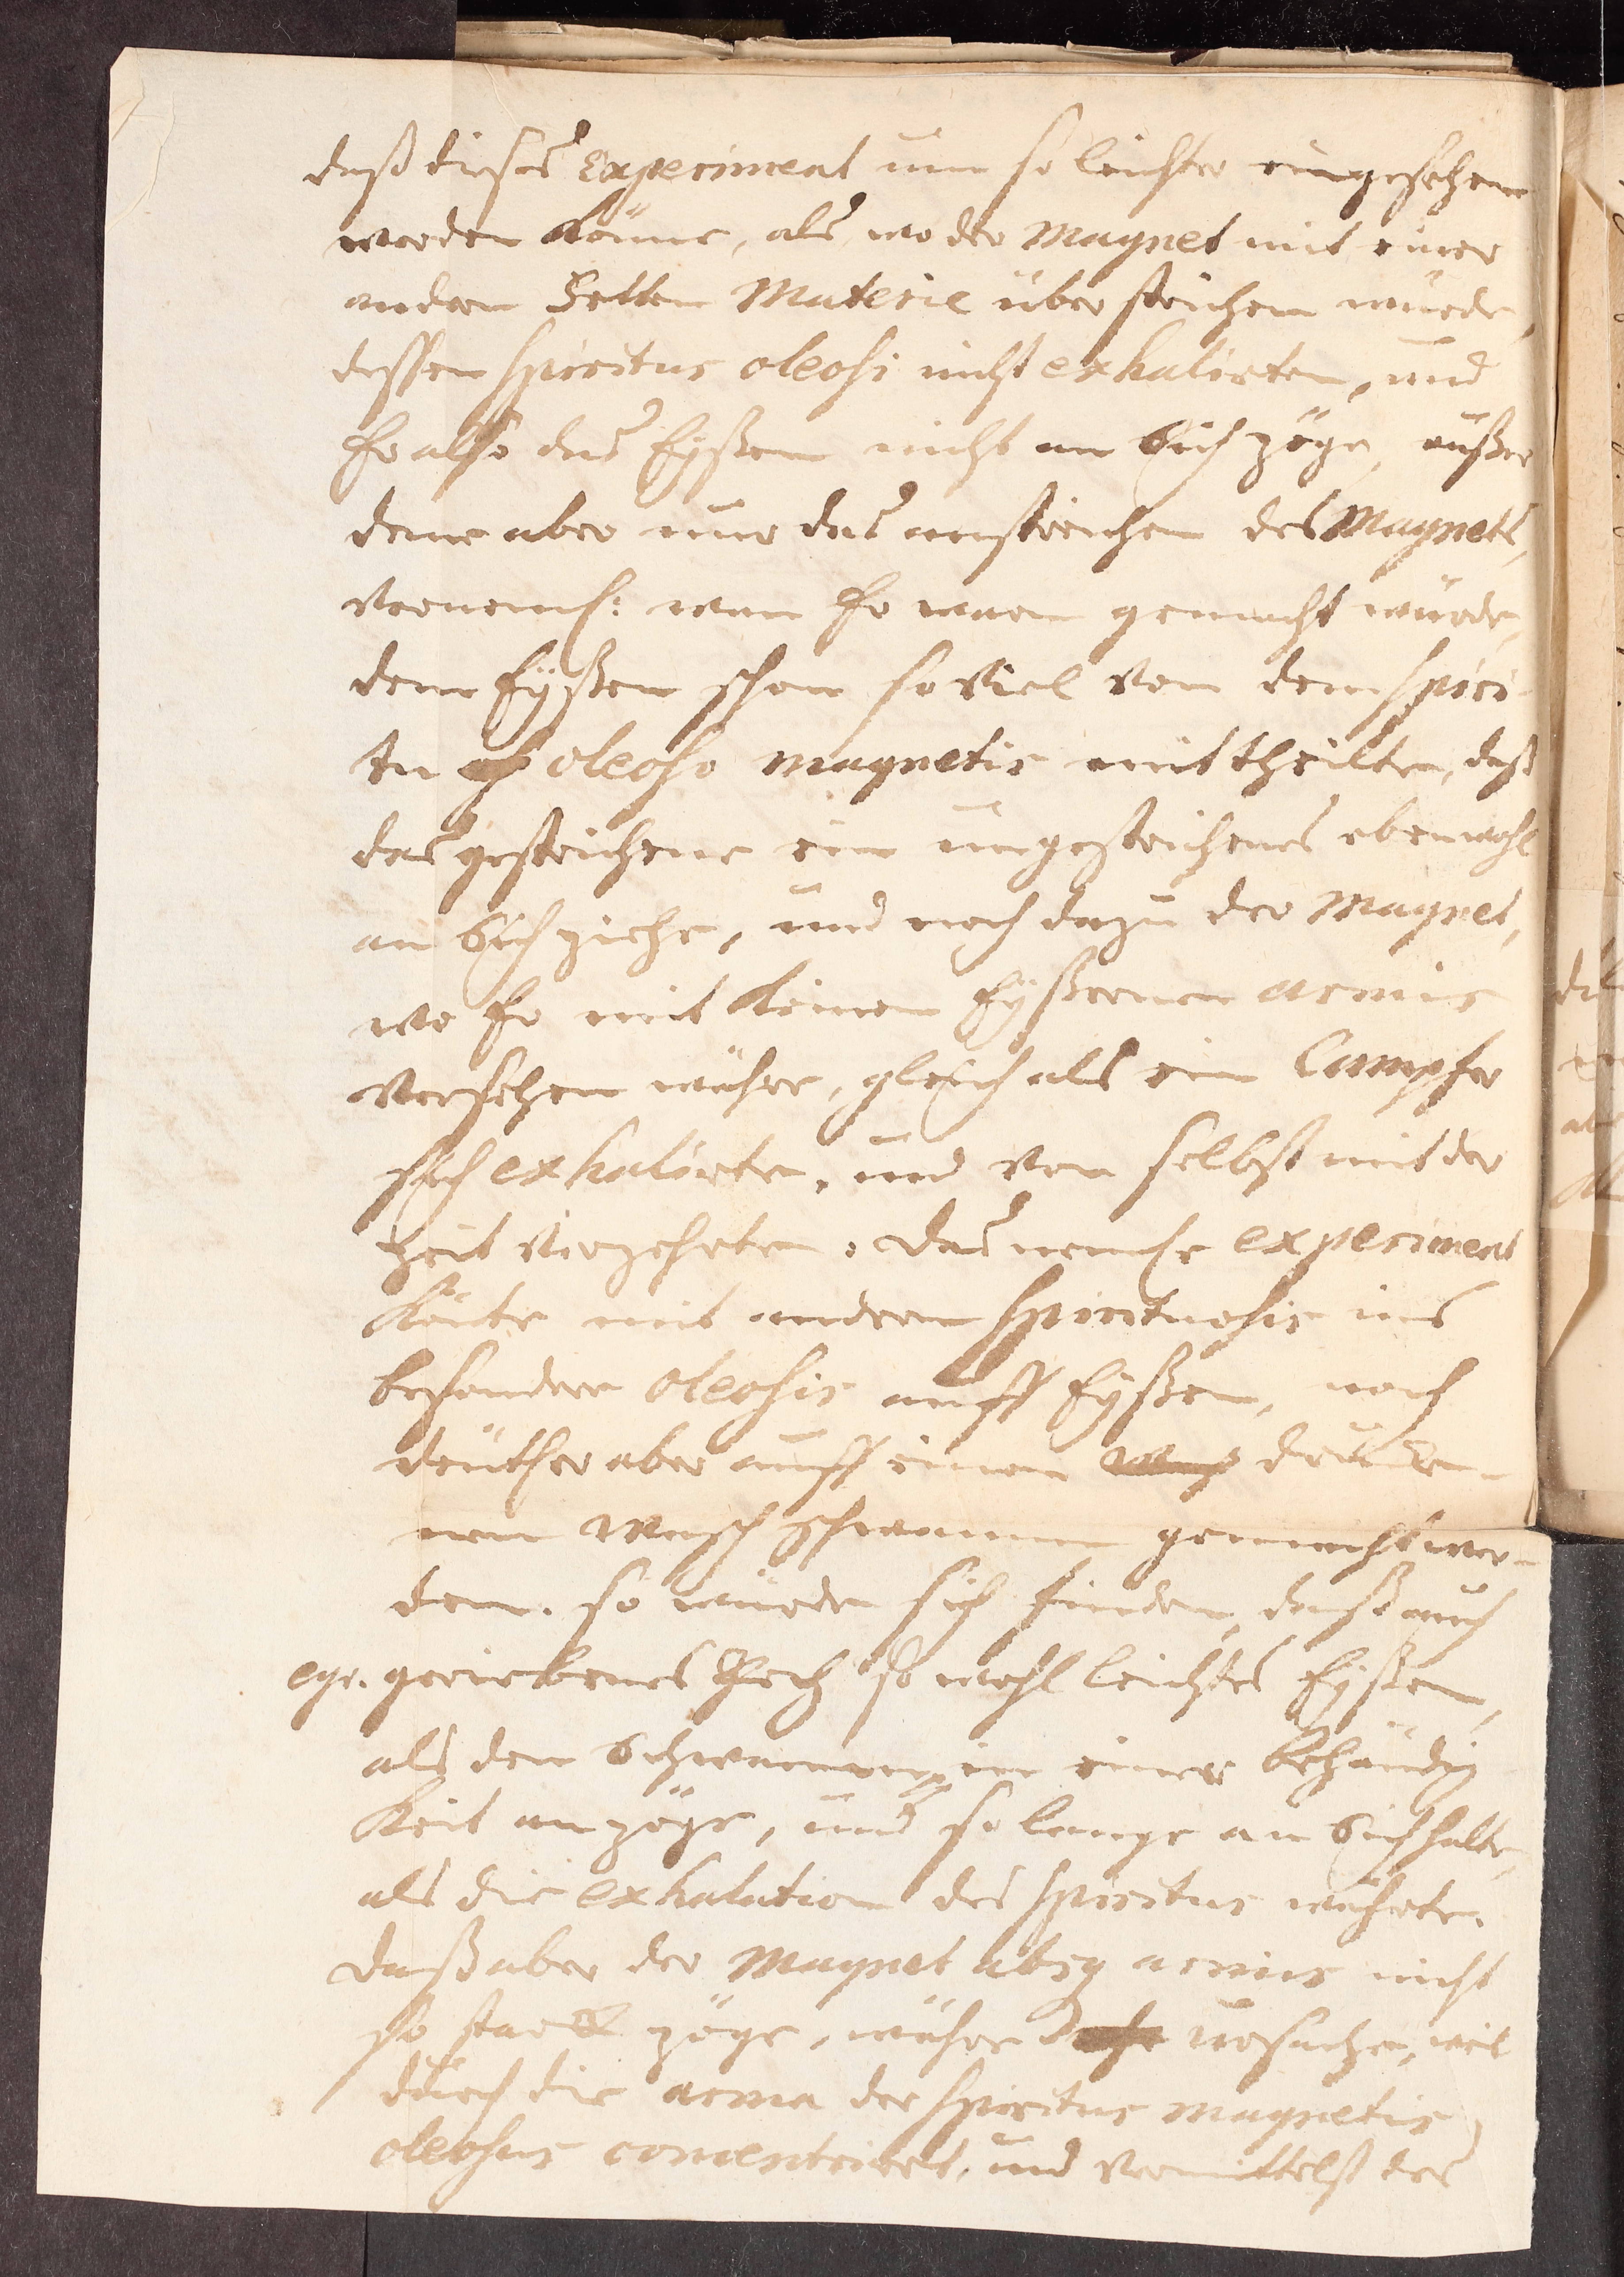 daß dieses Experiment um so leichter eingesehen
werden könne, als wo der Magnet mit einer
andern Fetten Materie überstrichen würde,
dessen spiritus oleosi nicht exhalirten, und
Er also das Eyßen nicht an Sich zöge, außer
deme aber nur das anstreichen des Magnets,
vornemh: wan Er warm gemacht würde,
dem Eyßen schon so viel von dem spiri-
tu oleoso magnetis mittheilten, daß
das gestrichene ein ungestrichenes ebenwohl
an Sich ziehe, und noch dazu der Magnet,
wo Er mit keinen Eyßernen armis
versehen währe, gleich als ein Campfer
sich exhalirten, und von selbst mit der
Zeit verzehrten. Das nemhe experiment
könte mit andern spirituosis ins
besondere oleosis auff Eyßen, noch
deuther aber auff einen drucke-
nen Wasch schwamm gemacht wer-
den. so würde sich finden, daß auch
egr. geriebenes Pech so wohl leichtes Eyßen,
als den Schwammen in einer behändig
keit anzöge, und so lange an Sich halte,
als die exhalation des spiritus währte.
daß aber der Magnet absq armis nicht
so starck zöge, währe Ursache, weil
durch die arma der spiritus magnetis
oleosus concentrirt, und vermittelst des